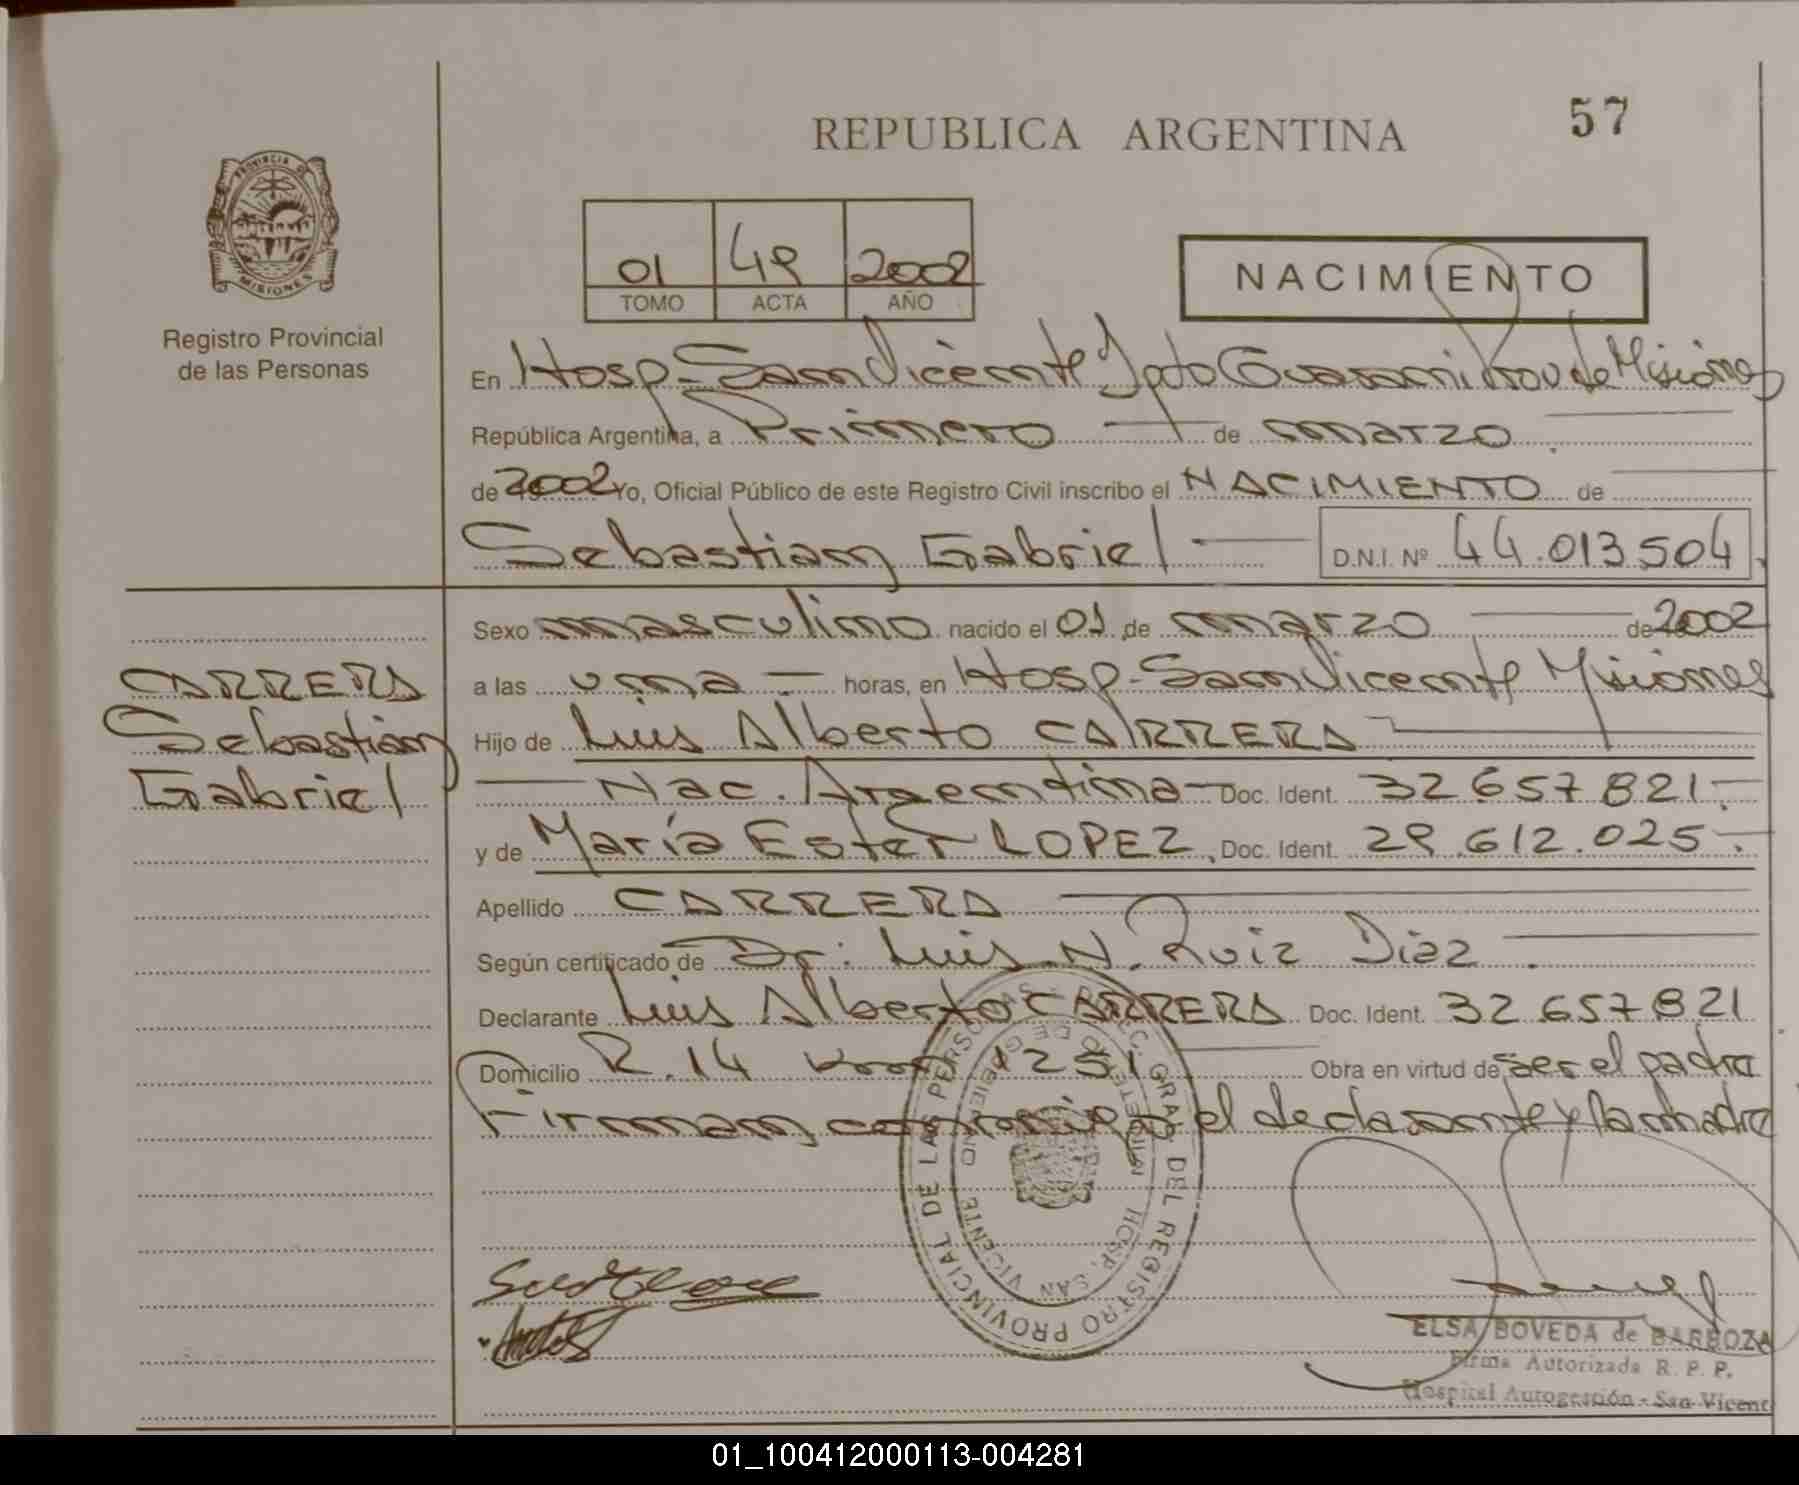 REPUBLICA ARGENTINA
57
PROVINCIA DE
MISIONES
Registro Provincial
de las Personas
01 49 2002
TOMO ACTA AÑO
NACIMIENTO
En Hosp. San Vicente Dpto Guarani Prov de Misiones
República Argentina, a Primero de marzo
de 2002 Yo, Oficial Público de este Registro Civil inscribo el NACIMIENTO de
Sebastian Gabriel D.N.I. Nº 44.013.504
Sexo masculino nacido el 01 de marzo de 2002
a las una horas, en Hosp. San Vicente Misiones
CARRERA
Sebastian
Gabriel
Hijo de Luis Alberto CARRERA
Nac. Argentina Doc. Ident. 32.657.821.-
y de María Ester LOPEZ, Doc. Ident. 29.612.025.-
Apellido CARRERA
Según certificado de Dr: Luis N. Ruiz Diaz
Declarante Luis Alberto CARRERA Doc. Ident. 32.657.821
Domicilio R.14 km 1251 Obra en virtud de ser el padre
Firman conmigo el declarante y la madre
GRAL DEL REGISTRO PROVINCIAL DE LAS PERSONAS
HOSP. SAN VICENTE
ELSA BOVEDA de BARBOZA
Firma Autorizada R. P. P.
Hospital Autogestión - San Vicent
01_100412000113-004281